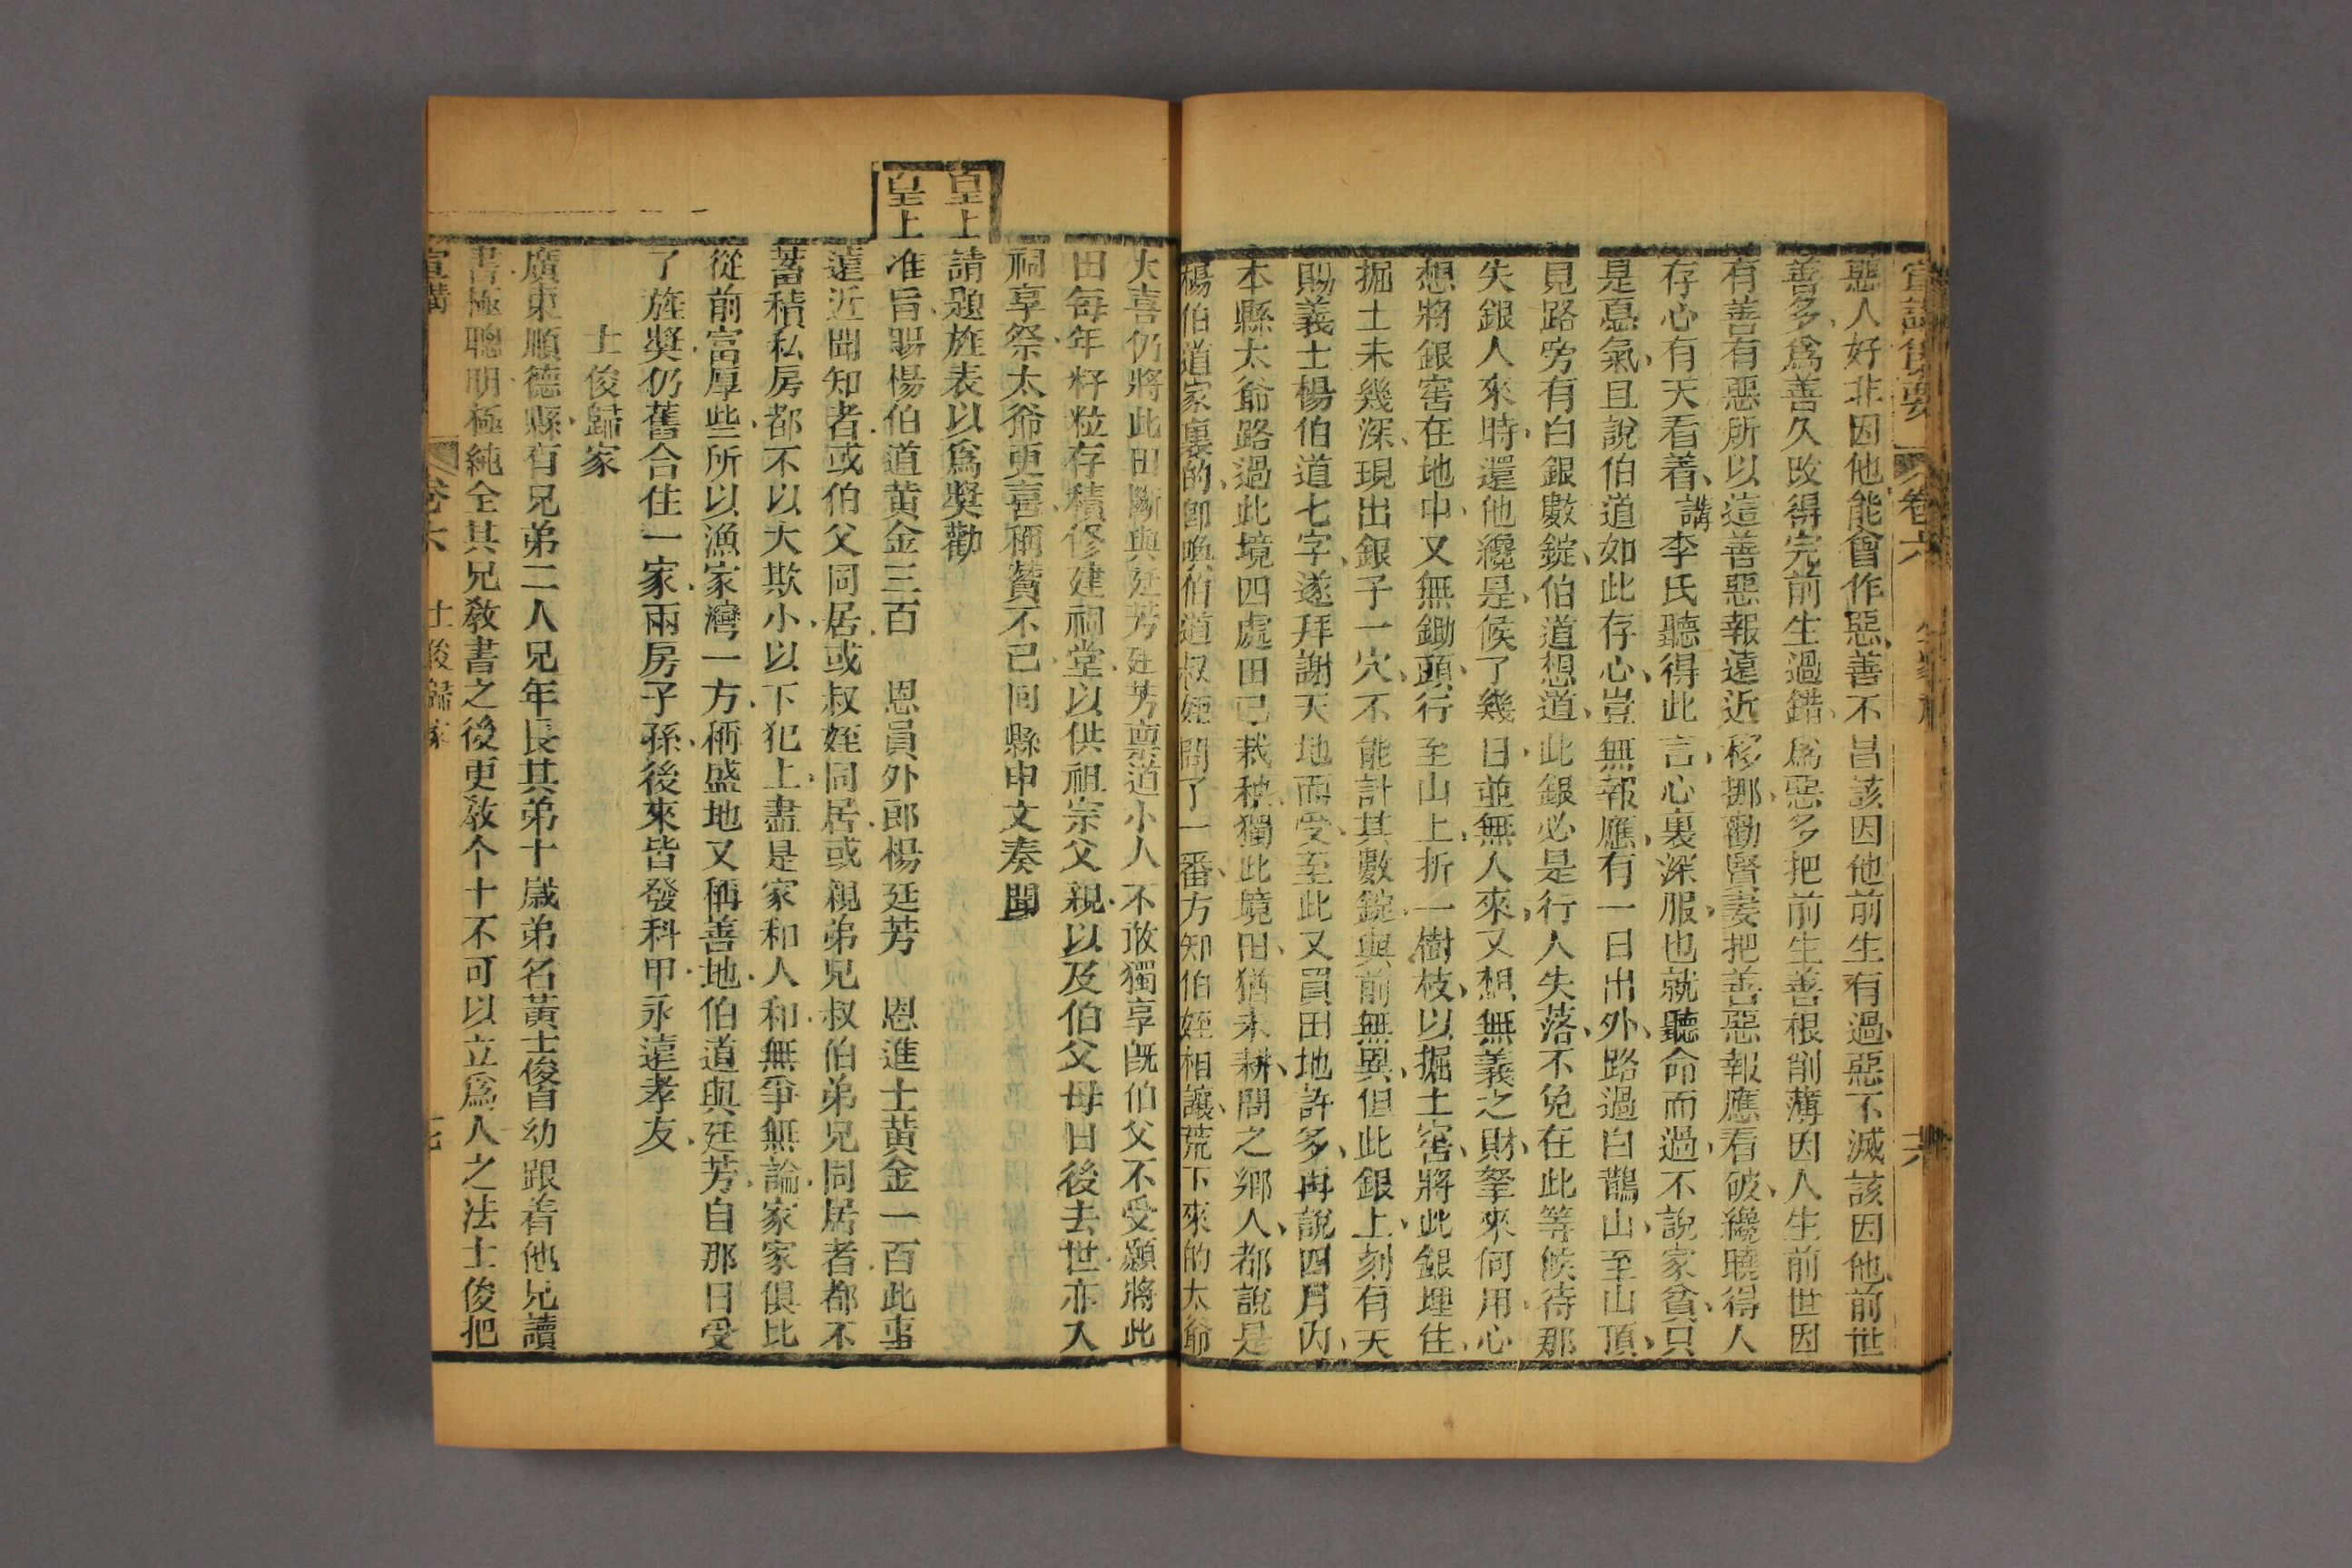 卷六 六
惡人好非因他能會作惡善不昌該因他前生有過惡不滅該因他前世
善多爲善久改得完前生過錯爲惡多把前生善根削薄因人生前世因
有善有惡所以這善惡報遠近移挪勸賢妻把善惡報應看破纔曉得人
存心有天看着講李氏聽得此言心裏深服也就聽命而過不說家貧只
是忍氣且說伯道如此存心豈無報應有一日出外路過白鶴山至山頂
見路旁有白銀數錠伯道想道此銀必是行人失落不免在此等候待那
失銀人來時還他纔是候了幾日並無人來又想無義之財拏來何用心
想將銀窖在地中又無鋤頭行至山上折一樹枝以掘土窖將此銀埋住
掘土未幾深現出銀子一穴不能計其數錠與前無異但此銀上刻有天
賜義士楊伯道七字遂拜謝天地而受至此又買田地許多再說四月內
本縣太爺路過此境四處田已栽種獨此境田猶未耕問之鄉人都說是
楊伯道家裏的卽喚伯道叔姪問了一番方知伯姪相讓荒下來的太爺
大喜仍將此田斷與廷芳廷芳稟道小人不敢獨享旣伯父不受願將此
田每年籽粒存積修建祠堂以供祖宗父親以及伯父母日後去世亦入
祠享祭太爺更喜稱贊不已回縣申文奏聞
皇上請題旌表以爲獎勸
皇上准旨賜楊伯道黃金三百 恩員外郎楊廷芳 恩進士黃金一百此事
遠近聞知者或伯父同居或叔姪同居或親弟兄叔伯弟兄同居者都不
蓄積私房都不以大欺小以下犯上盡是家和人和無爭無論家家俱比
從前富厚些所以漁家灣一方稱盛地又稱善地伯道與廷芳自那日受
了旌獎仍舊合住一家兩房子孫後來皆發科甲永遠孝友
士俊歸家
廣東順德縣有兄弟二人兄年長其弟十歲弟名黃士俊自幼跟着他兄讀
書極聰明極純全其兄教書之後更敎个十不可以立爲人之法士俊把
宣講 卷六 士俊歸家 十七